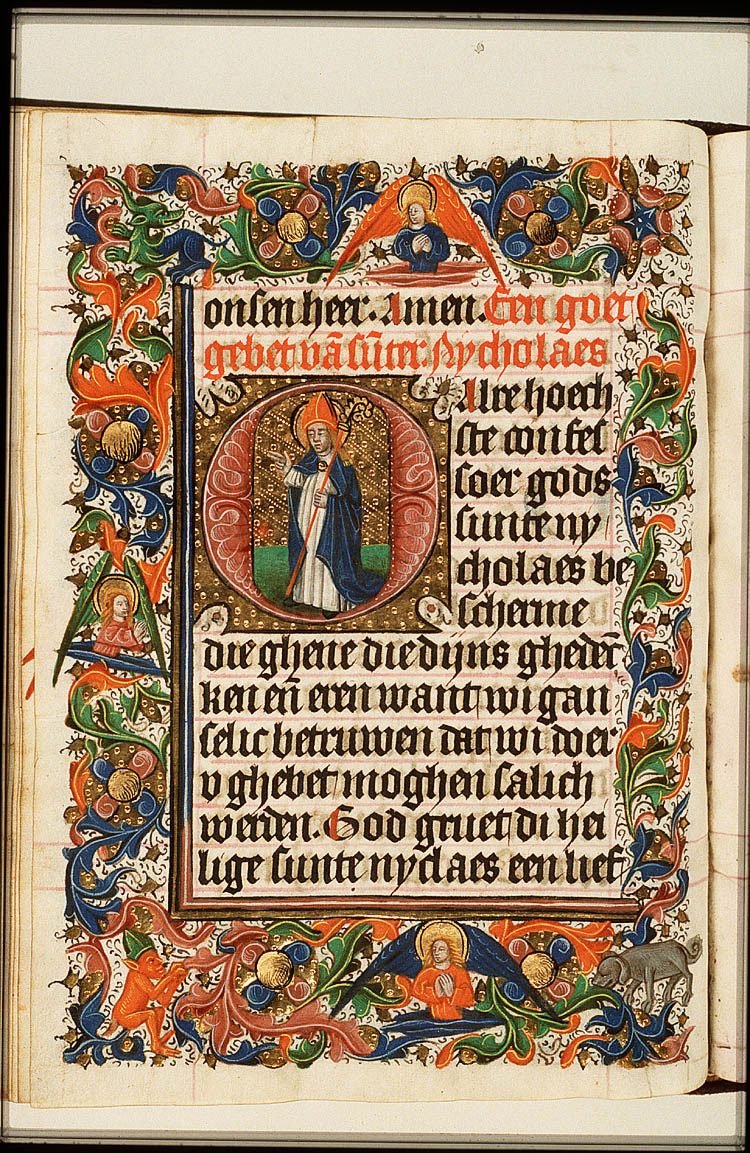 onsen heer. Amen. Een goet
gebet vā sūter Nycholaes
O Alre hoech
ste confes
soer gods
sunte ny
cholaes be
scherme
die ghene die dijns ghedēc
ken eñ eren want wi gan
selic betruwen dat wi doer
v ghebet moghen salich
werden. God gruet di hei
lige sunte nyclaes een lief